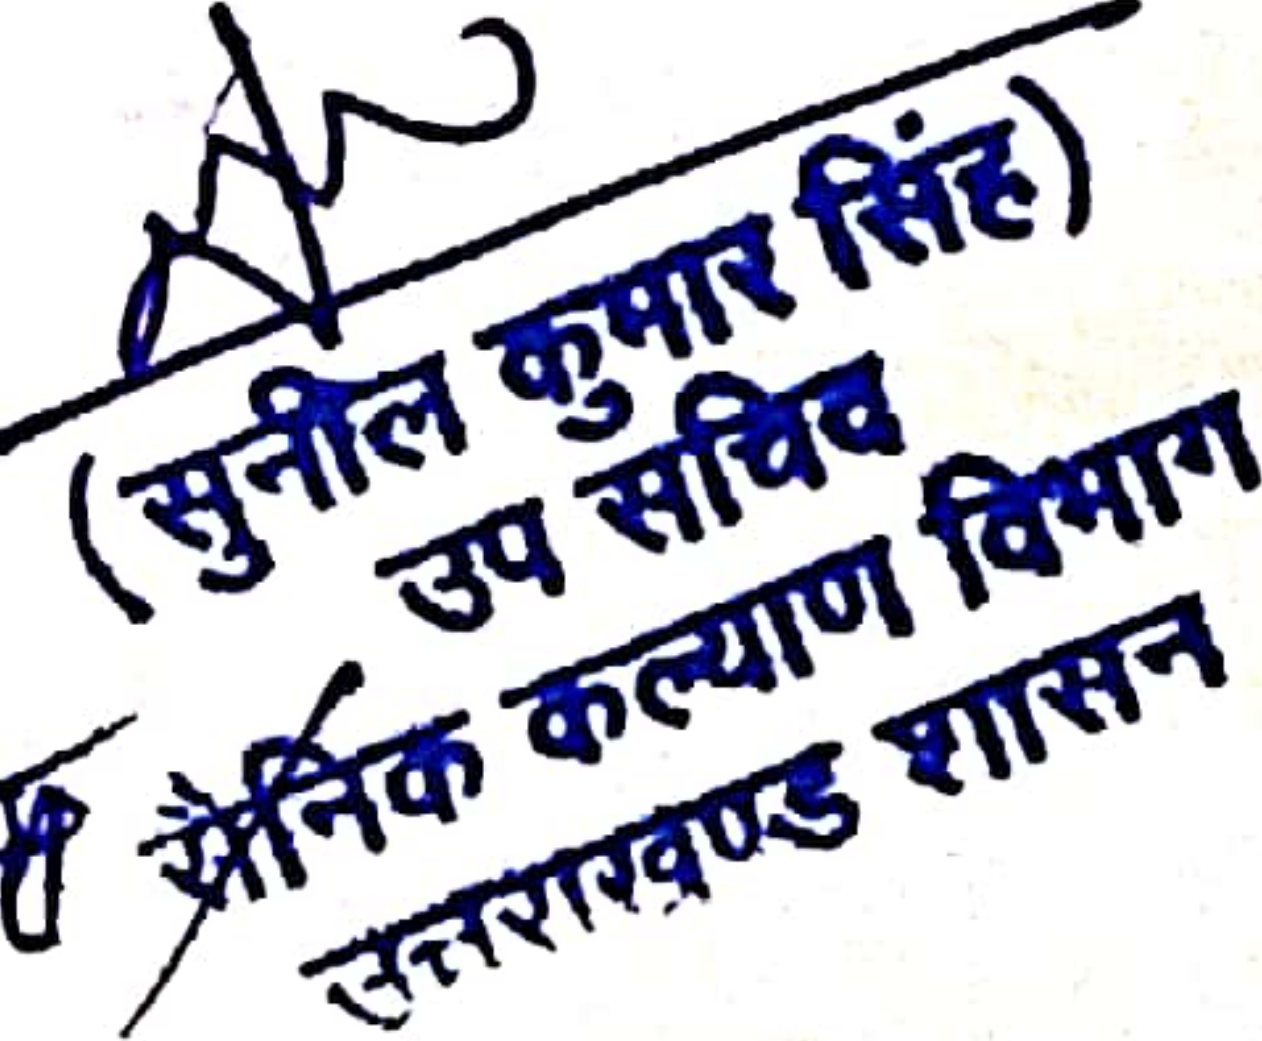 (सुनील कुमार सिंह)
उप सचिव
सैनिक कल्याण विभाग
उत्तराखण्ड शासन